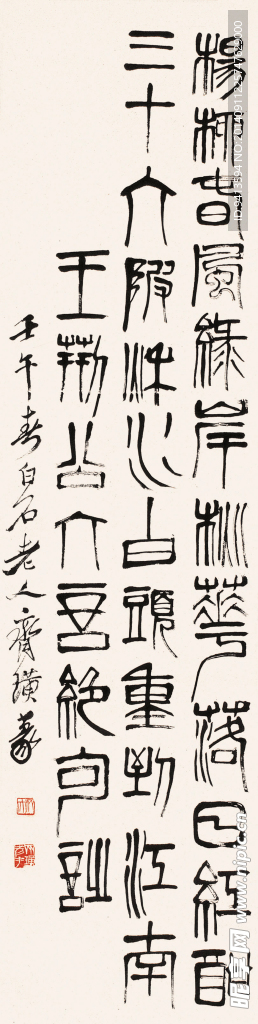 楊柳春風綠岸桃華落日紅酣
三十六陂秋水白頭重到江南
王荊公六言絕句詩
壬午春白石老人齊璜篆
昵享网 www.nipic.cn